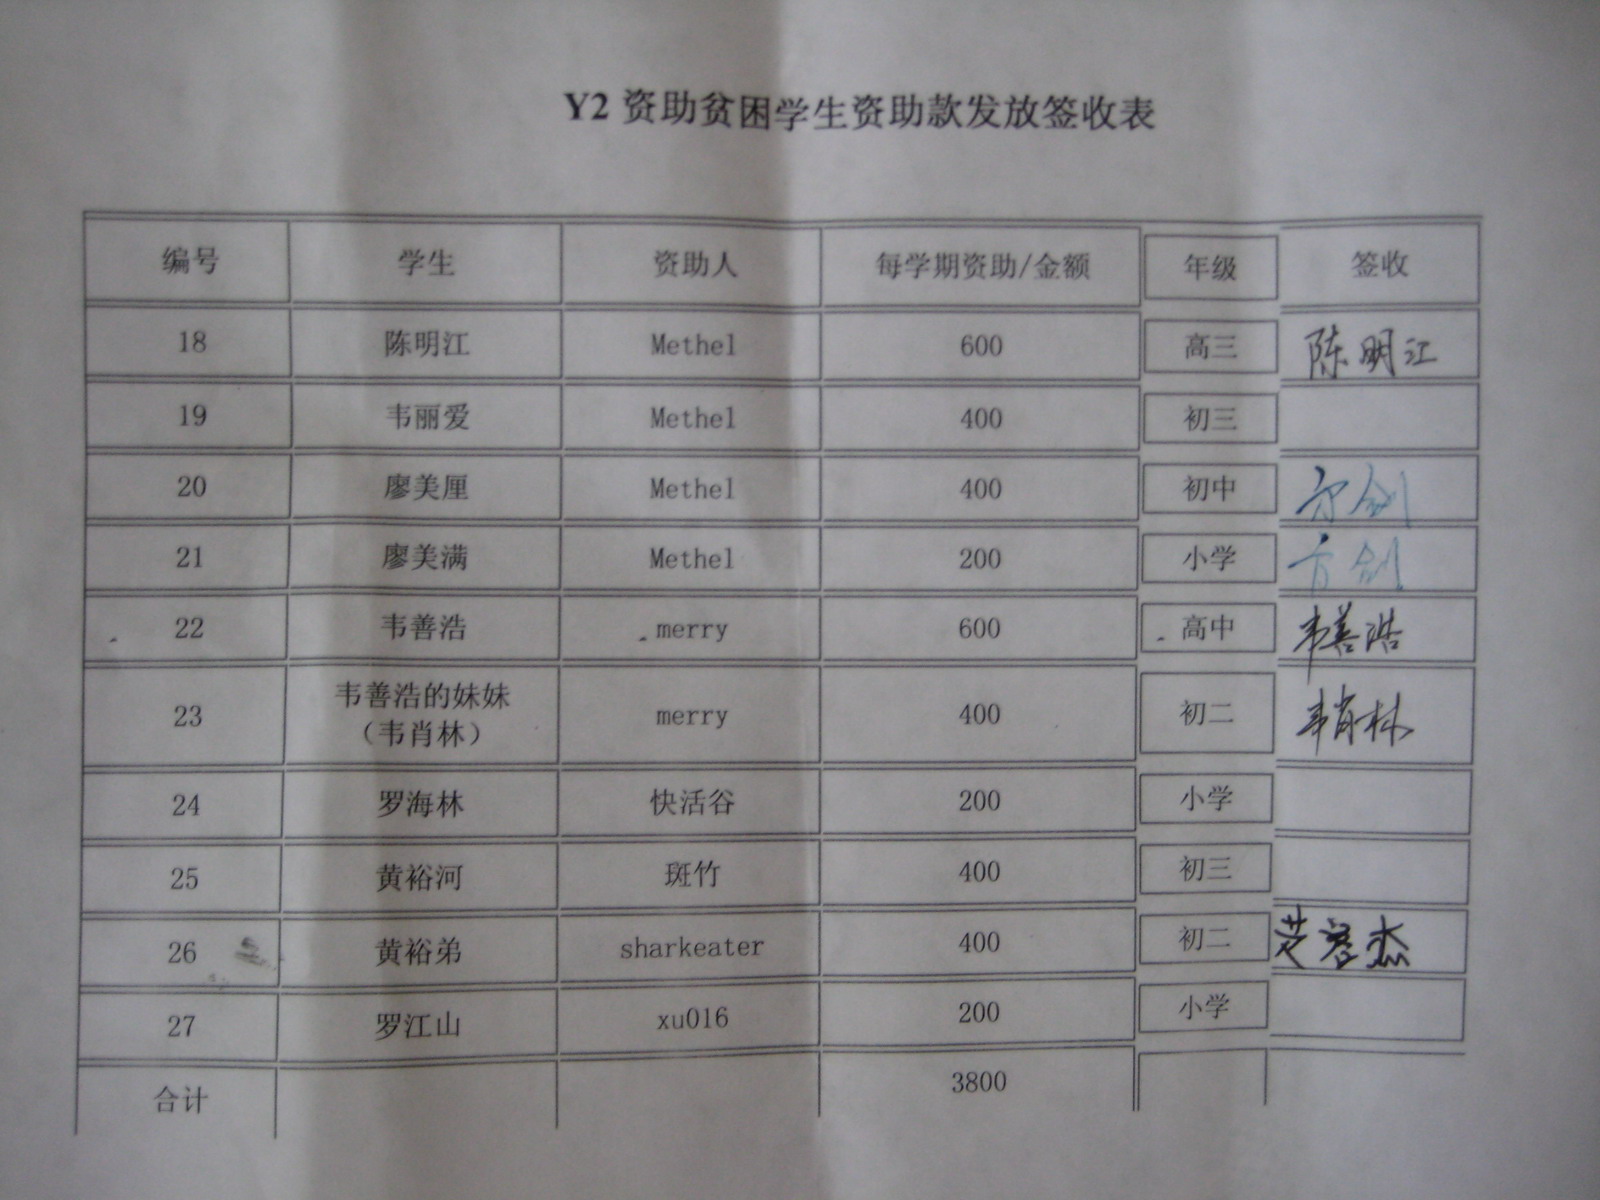 Y2 资助贫困学生资助款发放签收表
编号 学生 资助人 每学期资助/金额 年级 签收
18 陈明江 Methel 600 高三 陈明江
19 韦丽爱 Methel 400 初三
20 廖美厘 Methel 400 初中
21 廖美满 Methel 200 小学
22 韦善浩 merry 600 高中 韦善浩
23 韦善浩的妹妹 merry 400 初二 韦肖林
（韦肖林）
24 罗海林 快活谷 200 小学
25 黄裕河 斑竹 400 初三
26 黄裕弟 sharkeater 400 初二
27 罗江山 xu016 200 小学
合计 3800